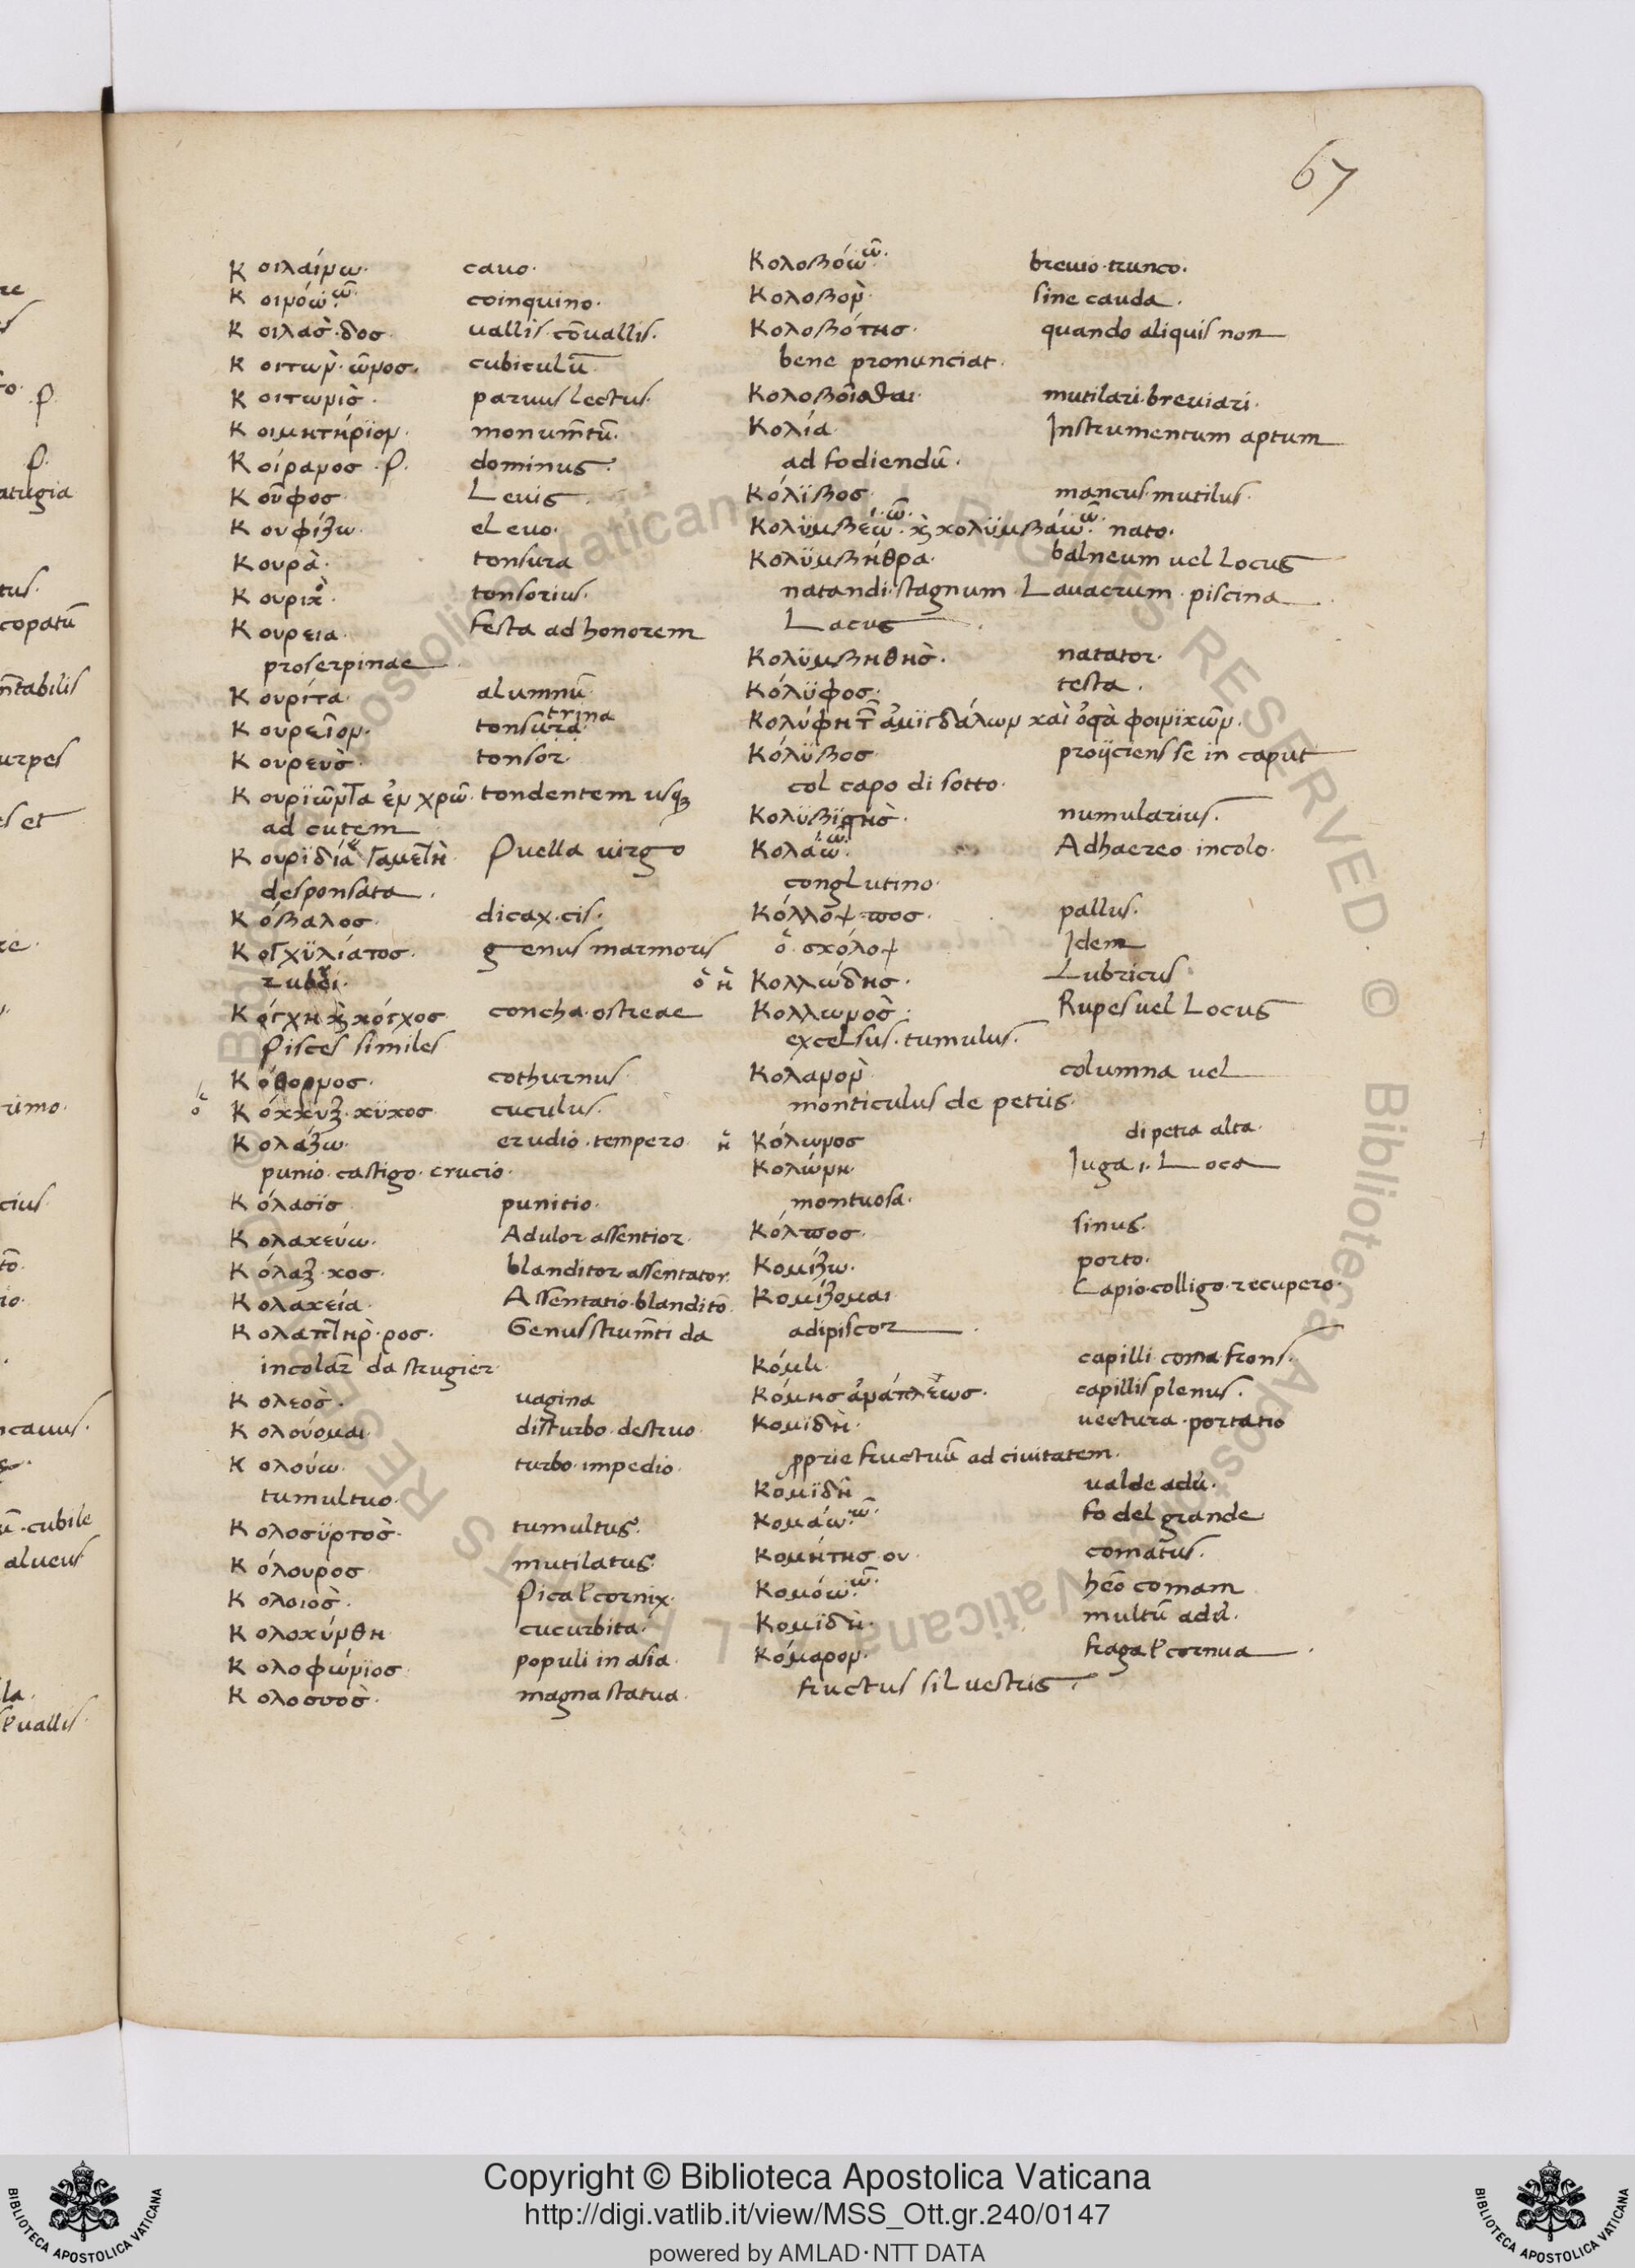 67
Κοιλαίνω· cauo·
Κοινόω ῶ· coinquino·
Κοιλὰσ· δοσ· uallis· cōuallis·
Κοιτὼν· ῶνοσ· cubiculū
Κοιτωνὶσ· paruus lectus·
Κοιμητήρϊον· monum̄tū·
Κοίρανοσ· ρ· dominus·
Κοῦφοσ· Leuis
Κουφίζω· eleuo·
Κουρὰ· tonsura
Κουρικὸ· tonsorius·
Κουρεια· festa ad honorem
proserpinae
Κουρίτα· alumnū·
Κουρεῖον· tonsura trina
Κουρεὺσ· tonsor·
Κουρϊῶντα ἐν χρῶ· tondentem usq3
ad cutem
Κουρϊδία γαμετὴ· Puella uirgo
desponsata·
Κόβαλοσ· dicax· cis·
Κογχϋλιάτοσ· genus marmoris
rubei·
Κόγχη κὶ κόγχοσ concha· ostreae
Pisces similes
Κόθορνοσ· cothurnus
ὁ Κόκκυξ· κϋκοσ cuculus·
Κολάζω· erudio· tempero·
punio· castigo· crucio·
Κόλασϊσ punitio·
Κολακεύω· Adulor assentior·
Κόλαξ· κοσ· blanditor assentator·
Κολακεία· Assentatio· blanditō·
Κολαπτὴρ· ροσ· Genus strum̄ti da
incolar da strugier·
Κολεὸσ· uagina
Κολούομαι· disturbo· destruo·
Κολούω· turbo· impedio·
tumultuo·
Κολοσϋρτὸσ· tumultus·
Κόλουροσ mutilatus·
Κολοιὸσ· Pica ł cornix·
Κολοκύνθη cucurbita·
Κολοφώνϊοσ· populi in asia·
Κολοσσὸσ· magna statua·
Κολοβόω ῶ· breuio· trunco·
Κολοβὸν· sine cauda·
Κολοβότησ· quando aliquis non
bene pronunciat·
Κολοβοῖσθαι· mutilari· breuiari·
Κολία· Instrumentum aptum
ad fodiendū·
Κόλϊβοσ· mancus· mutilus·
Κολϋμβέω ῶ· κὶ κολϋμβάω ῶ· nato·
Κολϋμβήθρα· balneum uel Locus
natandi· stagnum· Lauacrum· piscina
Lacus
Κολϋμβηθὴσ· natator·
Κόλϋφοσ· testa·
Κολύφη τ̄ ἀμϊγδάλων καὶ ὀστὰ φοινϊκῶν·
Κόλϋβοσ· proijciens se in caput
col capo di sotto·
Κολϋβϊστὴσ· numularius·
Κολάω ῶ· Adhaereo· incolo·
conglutino·
Κόλλοψ· ποσ· pallus·
ὁ· σκόλοψ Idem
ὁ ἡ Κολλώδησ· Lubricus
Κολλωνὸσ· Rupes uel Locus
excelsus· tumulus·
Κολανὸν columna uel
monticulus de petris·
ἡ Κόλωνοσ di petra alta·
Κολώνη· Iuga ı· Loca
montuosa·
Κόλποσ· sinus·
Κομίζω· porto·
Κομίζομαι Capio· colligo· recupero·
adipiscor
Κόμη· capilli· coma· frons·
Κόμησ ἀνάπλεωσ· capillis plenus·
Κομϊδὴ· uectura· portatio
proprie fructuū ad ciuitatem·
Κομϊδῆ ualde adū·
Κομάω ῶ· fo del grande
Κομήτησ ου· comatus·
Κομόω ῶ· heō comam
Κομϊδὴ· multū adū·
Κόμαρον· fraga ł cornua
fructus siluestris·
Copyright © Biblioteca Apostolica Vaticana
http://digi.vatlib.it/view/MSS_Ott.gr.240/0147
powered by AMLAD·NTT DATA
BIBLIOTECA APOSTOLICA VATICANA
BIBLIOTECA APOSTOLICA VATICANA